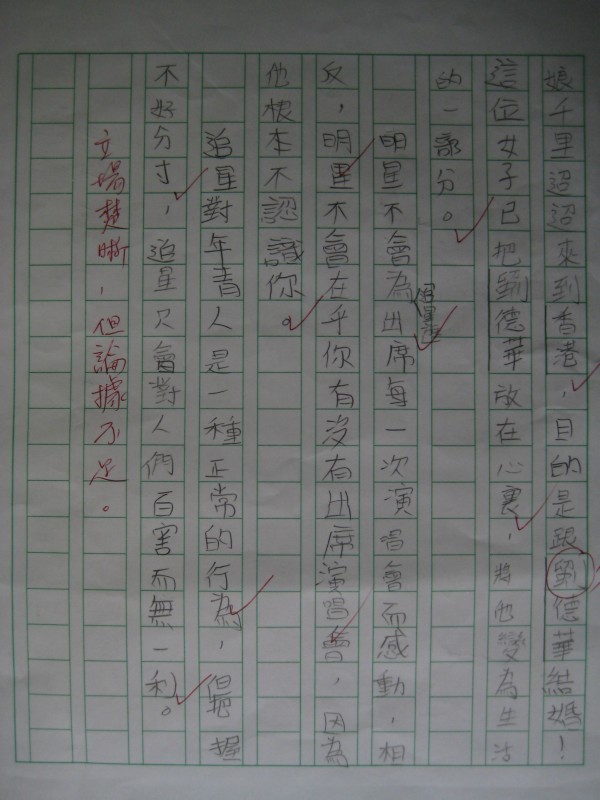 娘千里迢迢來到香港，目的是跟劉德華結婚！
這位女子已把劉德華放在心裏，將他變為生活
的一部分。
明星不會為追星族出席每一次演唱會而感動，相
反，明星不會在乎你有沒有出席演唱會，因為
他根本不認識你。
追星對年青人是一種正常的行為，但把握
不好分寸，追星只會對人們百害而無一利。
立場楚晰，但論據不足。